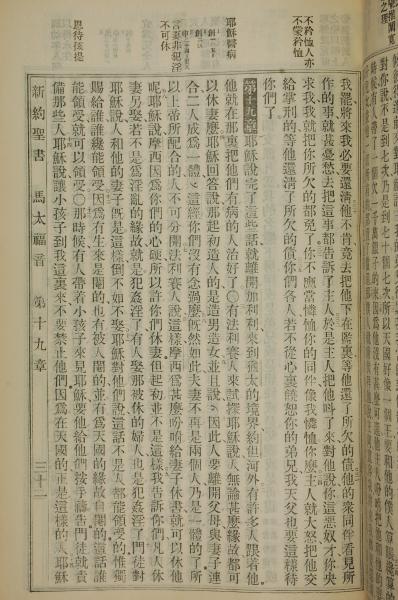 對你說不是到七次乃是到七十個七次所以天國好像一個王要和他的僕人算賬
不矜恤人亦
不蒙矜恤
我罷將來我必要還清他不肯竟去把他下在監裏等他還了所欠的債他的衆同伴看見所
作的事就甚憂愁去把這事都告訴了主人於是主人把他叫了來對他說你這惡奴才你央
求我我就把你所欠的都免了你不應當憐恤你的同伴像我憐恤你麼主人就大怒把他交
給掌刑的等他還清了所欠的債你們各人若不從心裏饒恕你的弟兄我天父也要這樣待
你們了
耶穌醫病
第十九章耶穌說完了這些話就離開加利利來到猶太的境界約但河外有許多人跟着他
他就在那裏把他們有病的人治好了〇有法利賽人來試探耶穌說人無論甚麼緣故都可
以休妻麼耶穌回答說那起初造人的是造男造女並且說因此人要離開父母與妻子連
合二人成爲一體這經你們沒有念過麼旣然如此夫妻不再是兩個人乃是一體的了所
言妻非犯淫
不可休
以上帝所配合的人不可分開法利賽人說這樣摩西爲甚麼吩咐給妻子休書就可以休他
呢耶穌說摩西因爲你們的心硬所以許你們休妻但起初並不是這樣我告訴你們凡人休
妻另娶若不是爲淫亂的緣故就是犯姦淫了有人娶那被休的婦人也是犯姦淫了門徒對
耶穌說人和他的妻子旣是這樣倒不如不娶耶穌對他們說這話不是人都能領受的惟獨
賜給誰誰纔能領受因爲有生來是閹的也有被人閹的並有爲天國的緣故自閹的這話誰
恩待孩提
能領受就可以領受〇那時候有人帶着小孩子來見耶穌要他給他們按手禱告門徒就責
備那些人耶穌說讓小孩子到我這裏來不要禁止他們因爲在天國的正是這樣的人耶穌
新約聖書 馬太福音 第十九章 三十一